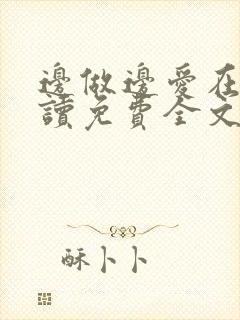 邊做邊愛在
讀免費全文
酥卜卜